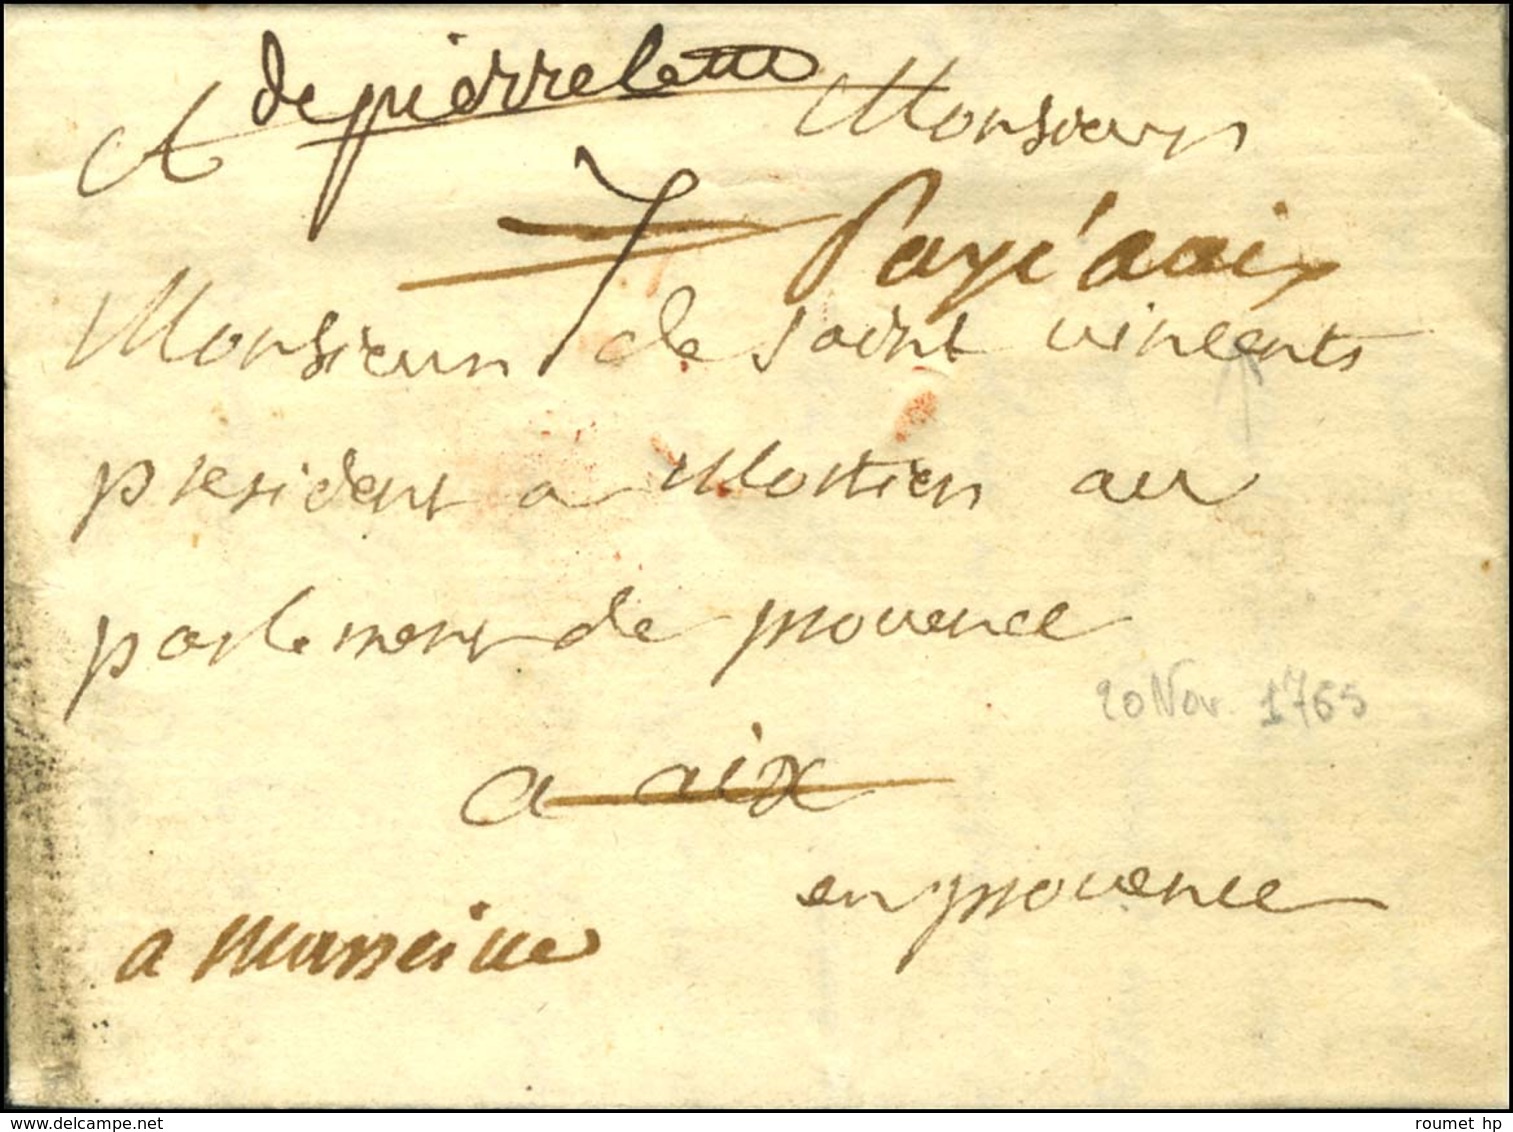 de pierrelatte
A Monsieur
7 Payé aaix
Monsieur de saint vincents
president a Mortier au
parlement de provence
20 Nov. 1765
a aix
en provence
a Marseille
delcampe.net
roumet hp